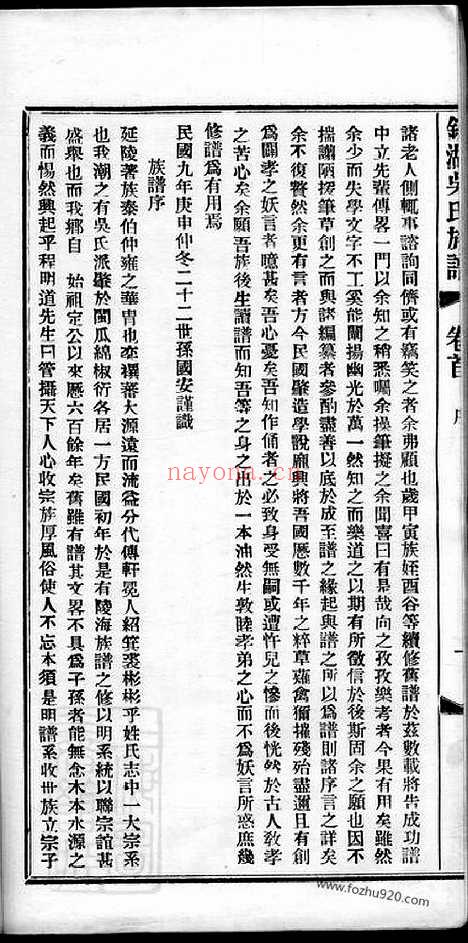 吳氏族譜 卷首 序
諸老人側輒事諮詢同儕或有竊笑之者余弗顧也歲甲寅族姪酉谷等續修舊譜於茲數載將告成功譜
中立先輩傳畧一門以余知之稍悉囑余操筆擬之余聞喜曰有是哉向之孜孜樂考者今果有用矣雖然
余少而失學文字不工奚能闡揚幽光於萬一然知之而樂道之以期有所徵信於後斯固余之願也因不
揣謭陋搦筆草創之而與諸編纂者參酌盡善以底於成至譜之緣起與譜之所以爲譜則諸序言之詳矣
余不復贅然余更有言者方今民國肇造學說龐興將吾國歷數千年之粹草薙禽獮摧殘殆盡邇且有創
爲闢孝之妖言者噫甚矣吾心憂矣吾知作俑者之必致身受無嗣或遭忤兒之慘而後恍然於古人敎孝
之苦心矣余願吾族後生讀譜而知吾等之身之出於一本油然生敦睦孝弟之心而不爲妖言所惑庶幾
修譜爲有用焉
民國九年庚申仲冬二十二世孫國安謹識
族譜序
延陵著族泰伯仲雍之華冑也奕禩蕃大源遠而流益分代傳軒冕人紹箕裘彬彬乎姓氏志中一大宗系
也我潮之有吳氏派肇於閩瓜綿椒衍各居一方民國初年於是有陵海族譜之修以明系統以聯宗誼甚
盛舉也而我鄉自 始祖定公以來歷六百餘年矣舊雖有譜其文畧不具爲子孫者能無念木本水源之
義而惕然興起乎程明道先生曰管攝天下人心收宗族厚風俗使人不忘本須是明譜系收世族立宗子
nayona.cn
www.fozhu920.com